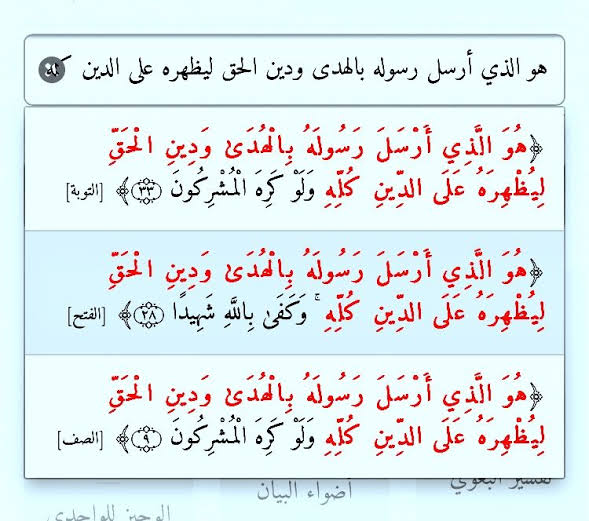 هو الذي أرسل رسوله بالهدى ودين الحق ليظهره على الدين كله
﴿هُوَ الَّذِي أَرْسَلَ رَسُولَهُ بِالْهُدَىٰ وَدِينِ الْحَقِّ
لِيُظْهِرَهُ عَلَى الدِّينِ كُلِّهِ وَلَوْ كَرِهَ الْمُشْرِكُونَ ﴿٣٣﴾ [التوبة]
﴿هُوَ الَّذِي أَرْسَلَ رَسُولَهُ بِالْهُدَىٰ وَدِينِ الْحَقِّ
لِيُظْهِرَهُ عَلَى الدِّينِ كُلِّهِ ۚ وَكَفَىٰ بِاللَّهِ شَهِيدًا ﴿٢٨﴾ [الفتح]
﴿هُوَ الَّذِي أَرْسَلَ رَسُولَهُ بِالْهُدَىٰ وَدِينِ الْحَقِّ
لِيُظْهِرَهُ عَلَى الدِّينِ كُلِّهِ وَلَوْ كَرِهَ الْمُشْرِكُونَ ﴿٩﴾ [الصف]
تفسير البغوي
أضواء البيان
الوجيز للواحدي